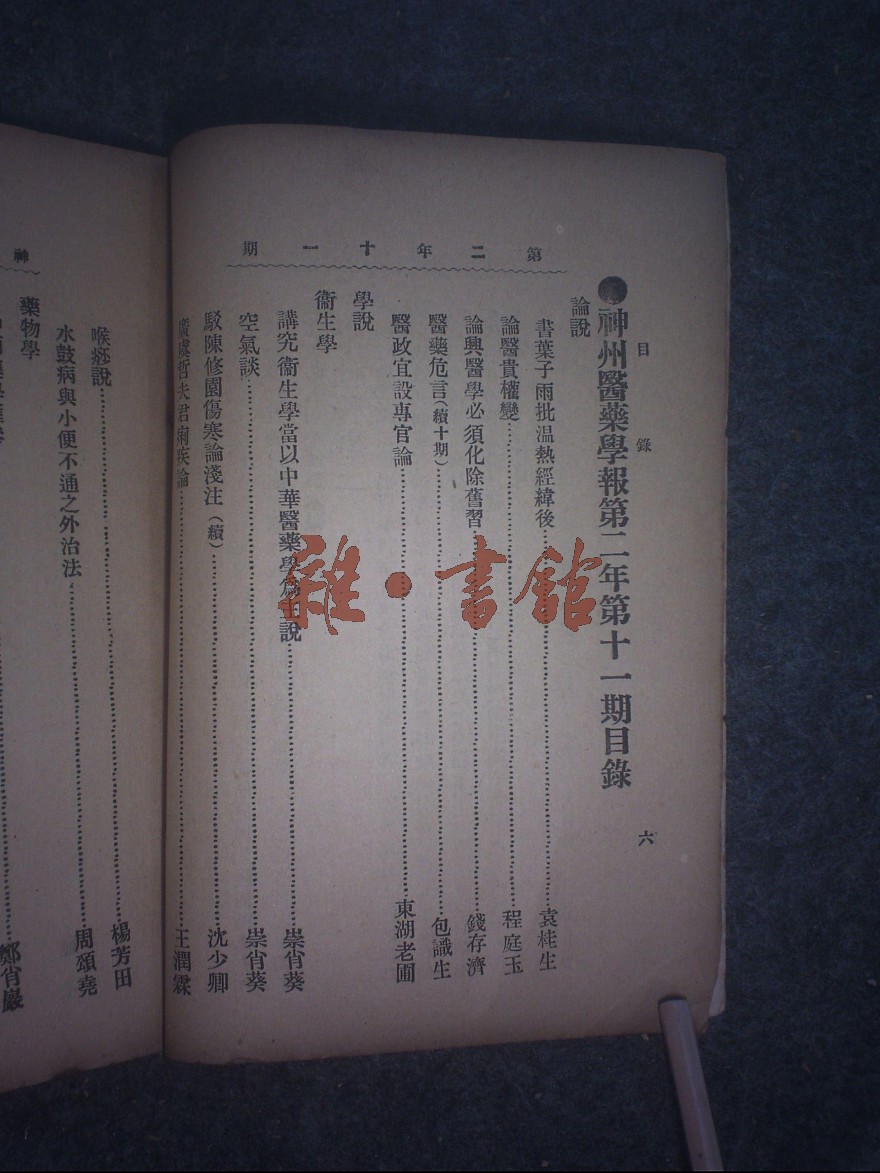 第二年十一期
目錄
六
神州醫藥學報第二年第十一期目錄
論說
書葉子雨批温熱經緯後……袁桂生
論醫貴權變……程庭玉
論興醫學必須化除舊習……錢存濟
醫藥危言(續十期)……包識生
醫政宜設專官論……東湖老圃
學說
衞生學
講究衞生學當以中華醫藥學爲主說……崇肖葵
空氣談……崇肖葵
駁陳修園傷寒論淺注(續)……沈少卿
廣虞哲夫君痢疾論……王潤霖
神
喉痧說……楊芳田
水鼓病與小便不通之外治法……周頌堯
藥物學
鄭肖巖
雜·書館